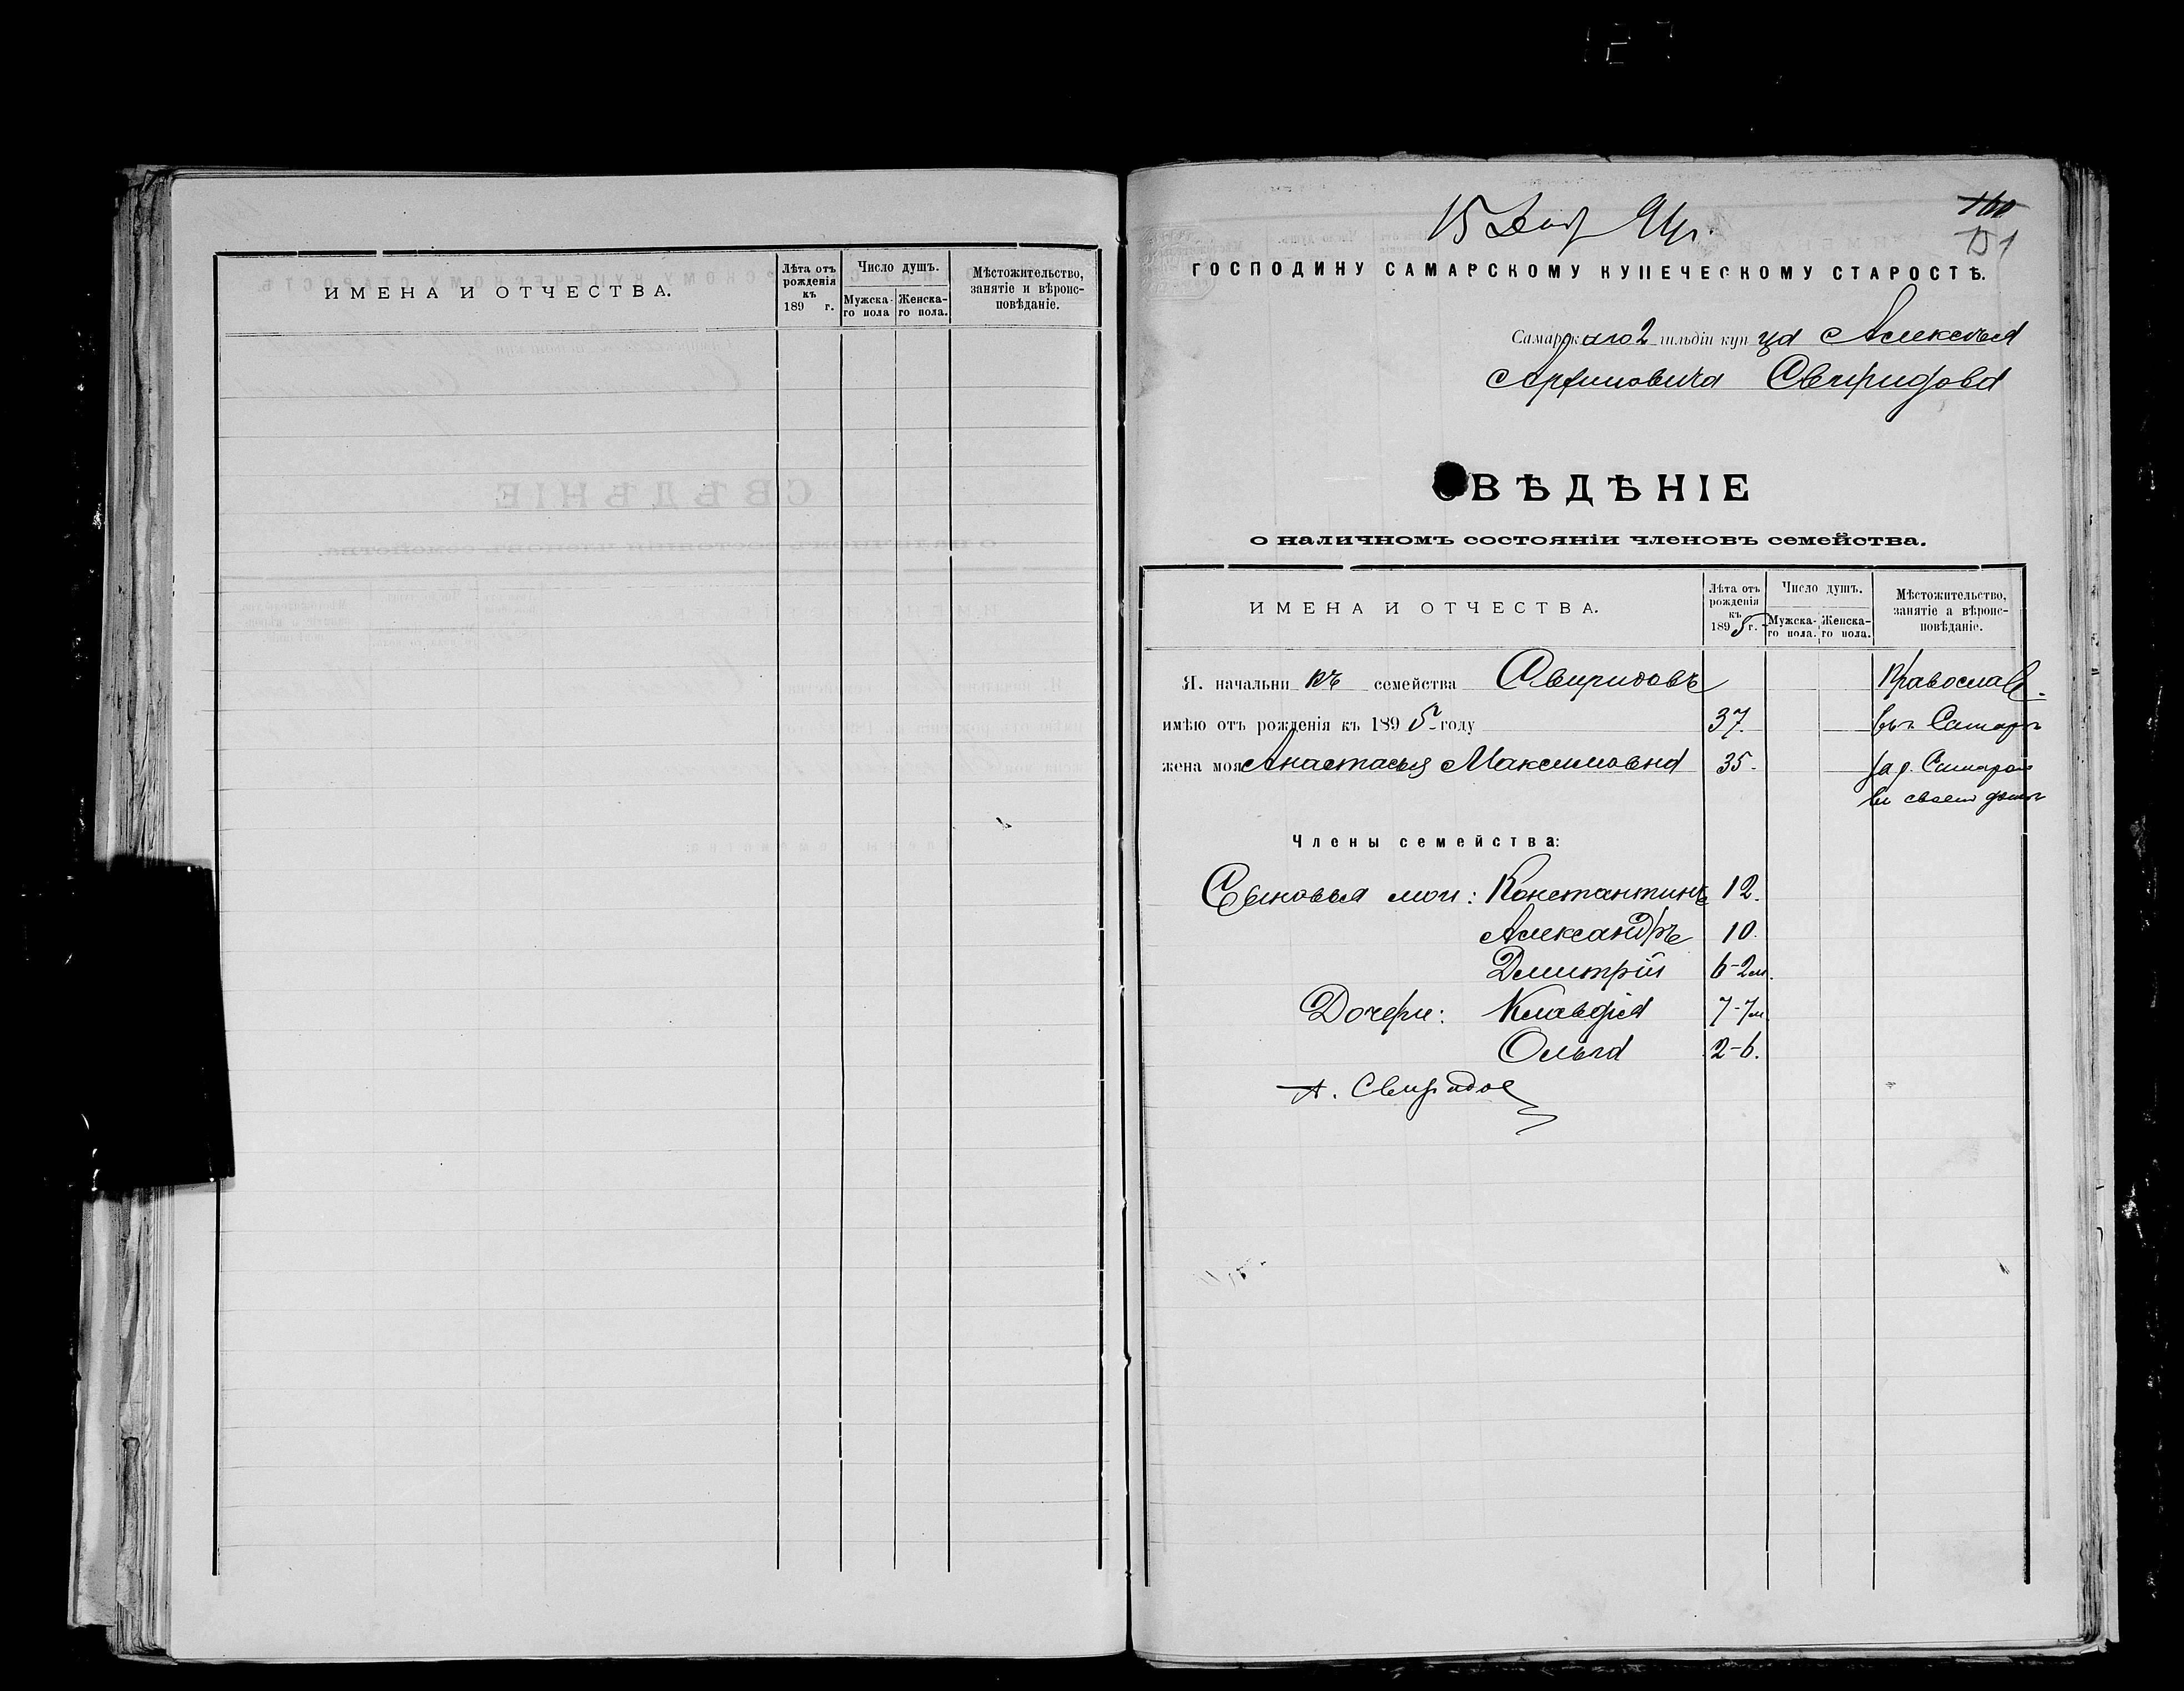 ИМЕНА И ОТЧЕСТВА.
Лѣта отъ рожденія къ 189 г.
Число душъ.
Мужска-го пола
Женска-го пола.
Мѣстожительство, занятіе и вѣроис-повѣданіе.
15 94 г.
160
151
ГОСПОДИНУ САМАРСКОМУ КУПЕЧЕСКОМУ СТАРОСТѢ.
Самарскаго 2 гильдіи купца Алексѣя
Свиридова
СВѢДѢНІЕ
о наличномъ состояніи членовъ семейства.
ИМЕНА И ОТЧЕСТВА.
Лѣта отъ рожденія къ 1895 г.
Число душъ.
Мужска-го пола.
Женска-го пола.
Мѣстожительство, занятіе а вѣроис-повѣданіе.
Я. начальникъ семейства Свиридовъ Православ.
имѣю отъ рожденія къ 1895 году 37. въ Самарѣ
жена моя Анастасья Максимовна 35. Самарой
въ своемъ домѣ
Члены семейства:
Сыновья мои: Константинъ 12.
Александръ 10.
Дмитрій 6-2 м.
Дочери: Клавдія 7-7 м.
Ольга 2-6.
А. Свиридов